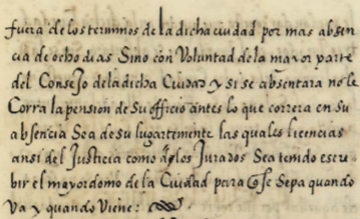 fuera de los terminos de la dicha ciudad por mas absen
cia de ocho dias Sino con Voluntad de la mayor parte
del Consejo dela dicha Ciudad y si se absentara no le
Corra la pension de Su officio antes lo que correra en su
absencia Sea de su lugarteniente las quales licencias
ansi del Justicia como de los Jurados Sea tenido escre-
bir el mayordomo de la Ciudad para Se Sepa quando
Va y quando Viene: